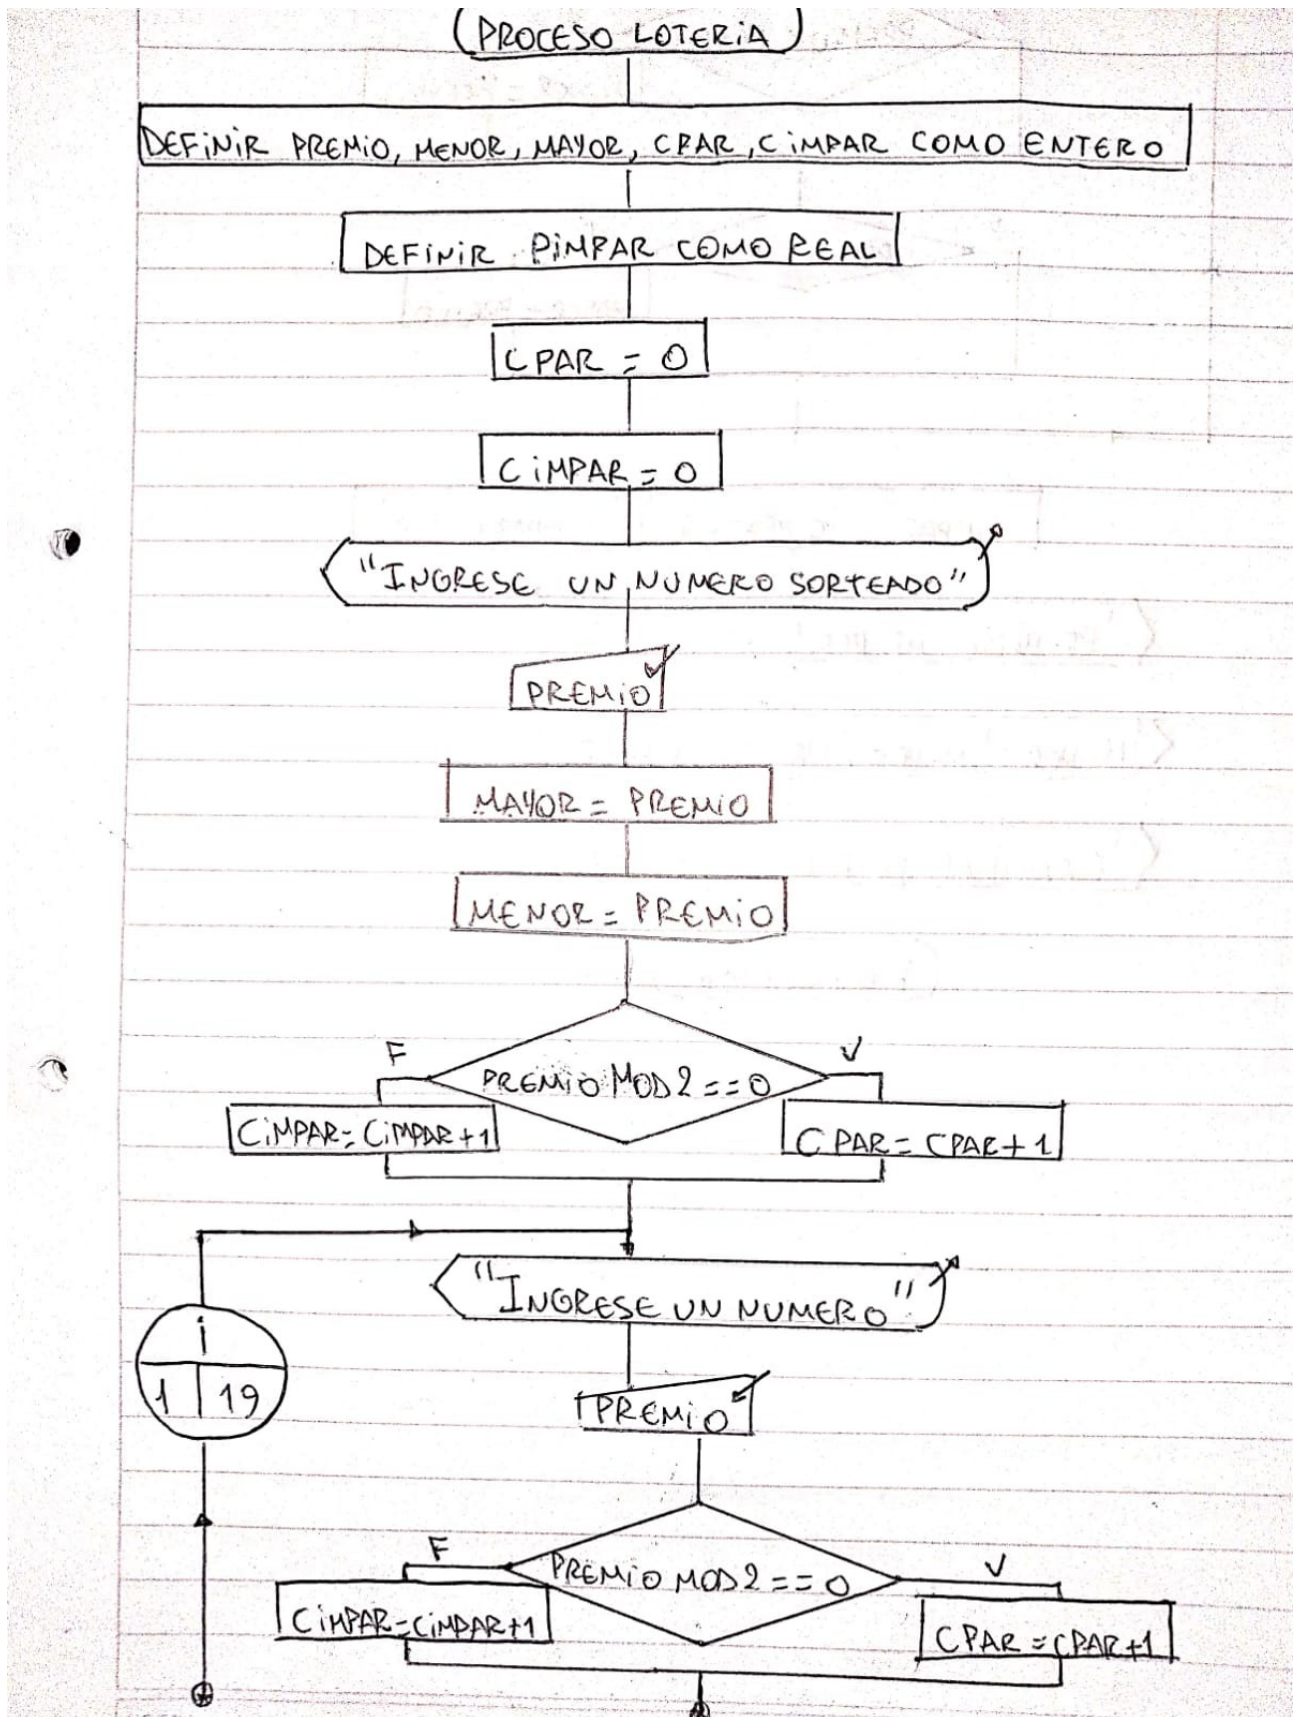 PROCESO LOTERiA
DEFiNiR PREMiO, MENOR, MAYOR, CPAR, CiMPAR COMO ENTERO
DEFiNiR PiMPAR COMO REAL
CPAR = 0
CiMPAR = 0
"INGRESE UN NUMERO SORTEADO"
PREMiO
MAYOR = PREMiO
MENOR = PREMiO
F
V
PREMiO MOD 2 == 0
CiMPAR = CiMPAR + 1
CPAR = CPAR + 1
"INGRESE UN NUMERO"
i
1 19
PREMiO
F
V
PREMiO MOD 2 == 0
CiMPAR = CiMPAR + 1
CPAR = CPAR + 1